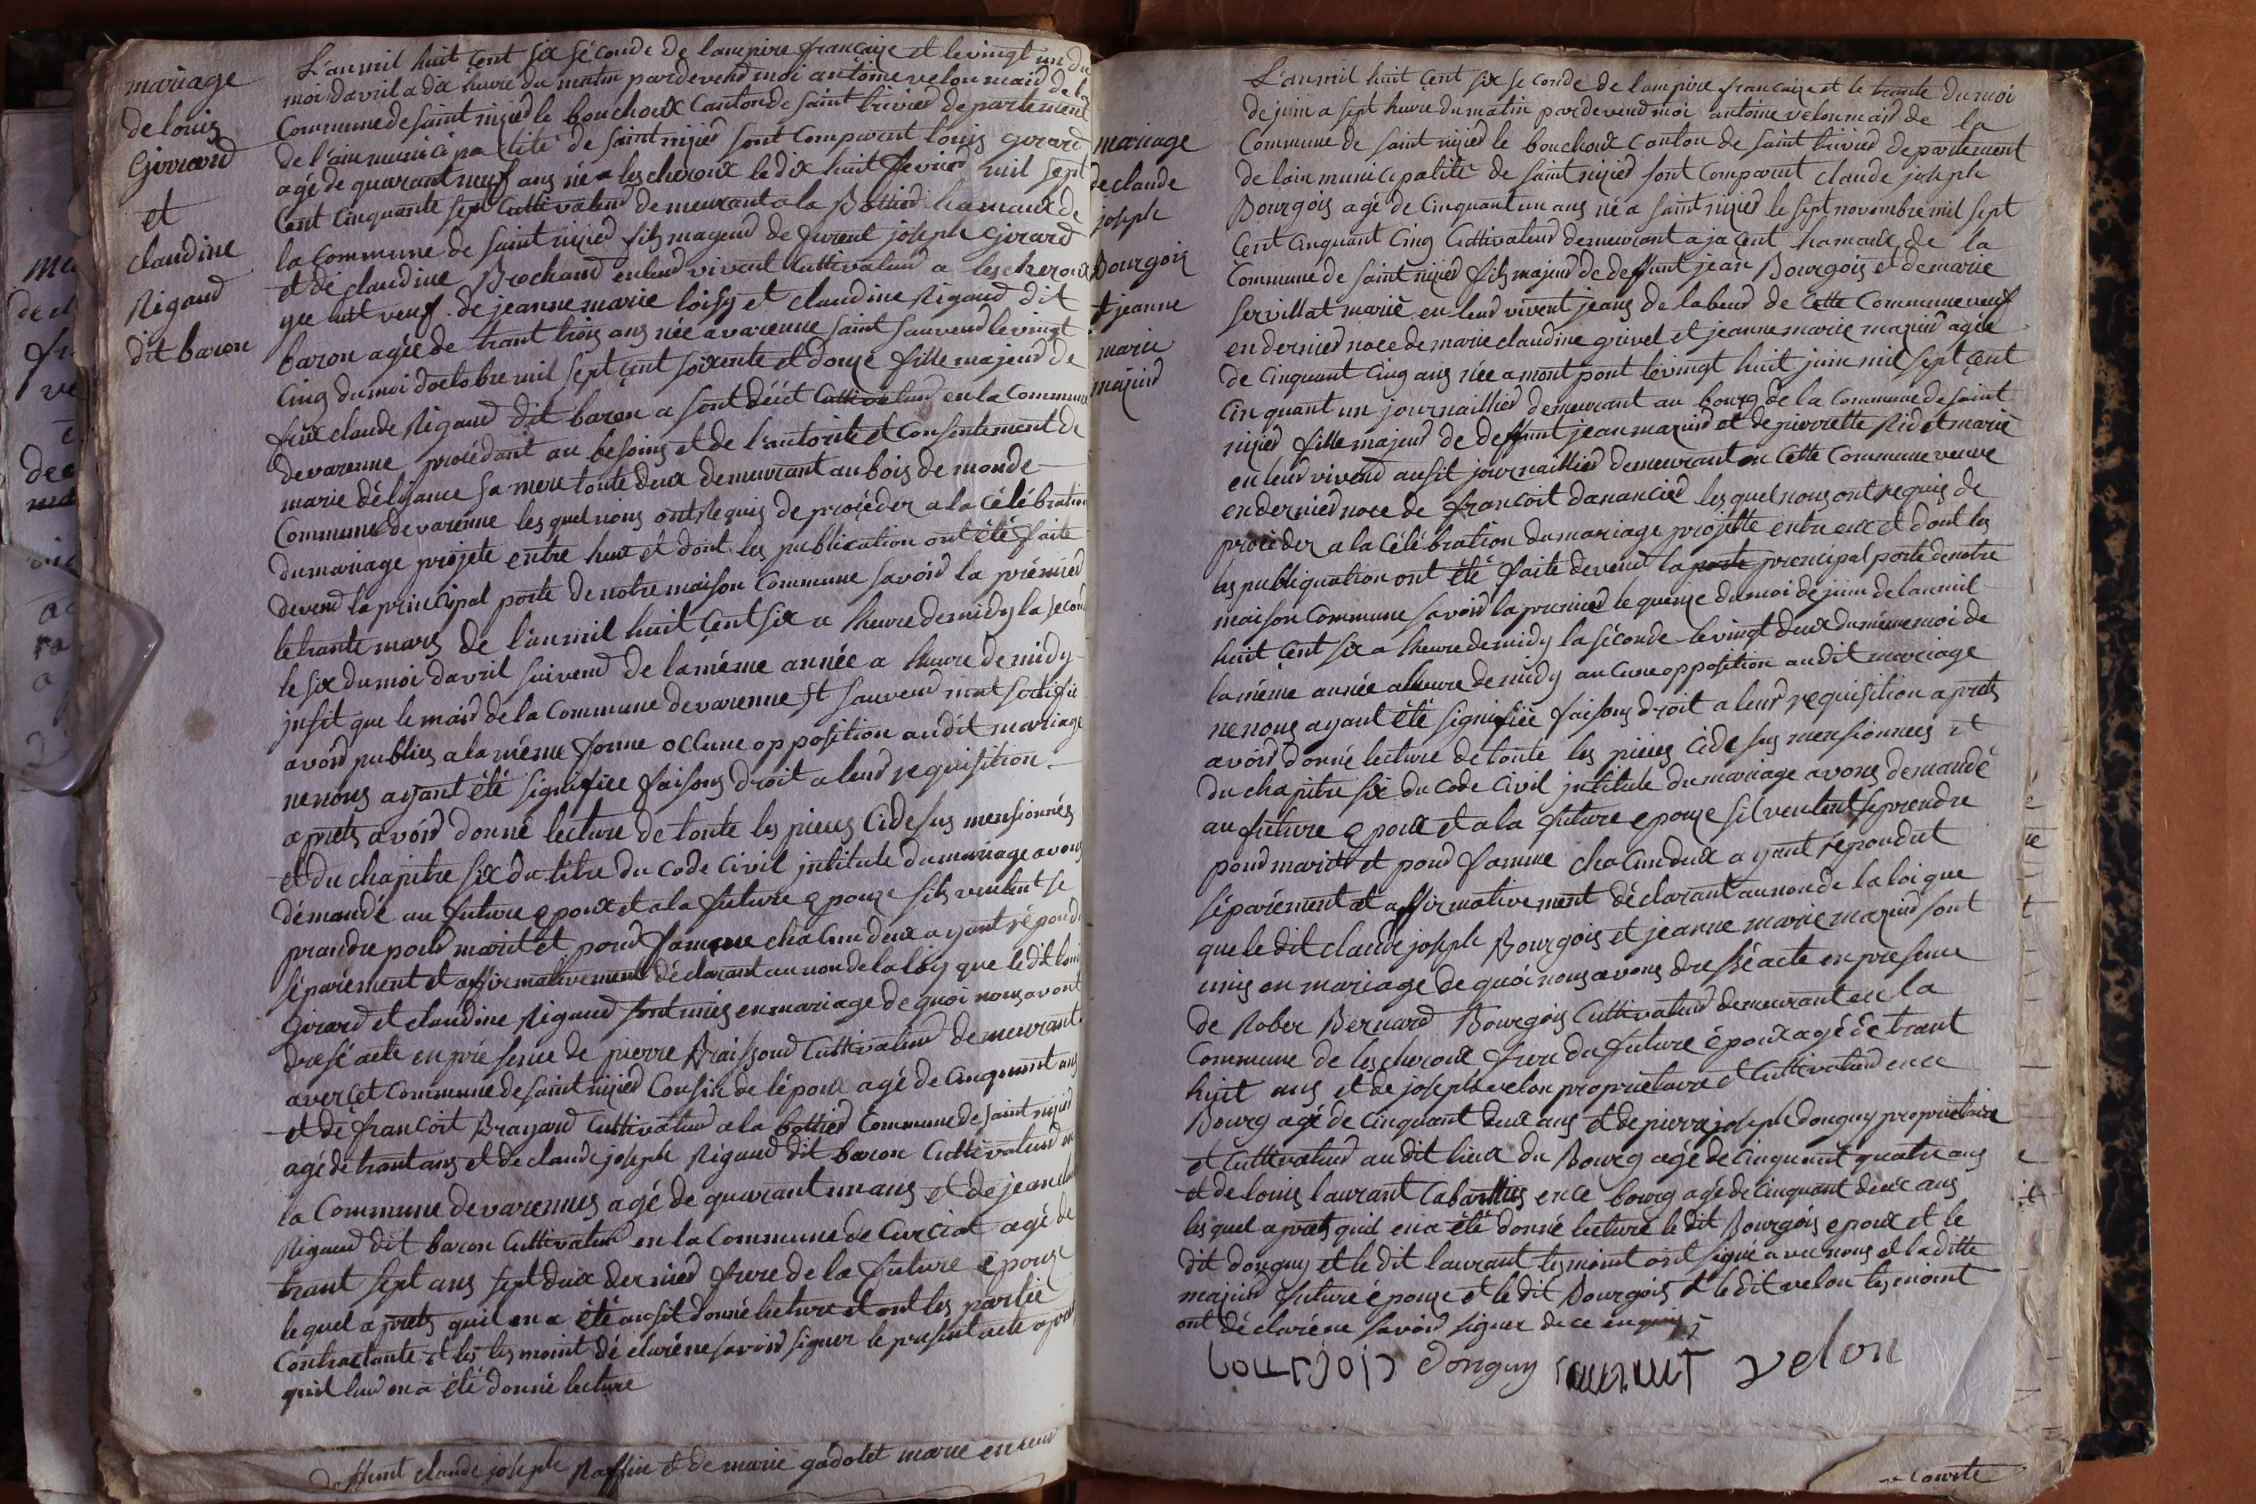 mariage
de louis
Girard
et
claudine
Rigaud
dit baron
L'an mil huit çent six séconde de lampire françaize et le vingt un du
moi davril a dix heure du matin pardevend moi antoine velon maid de la
Commune de saint nizied le bouchoux Canton de saint trivied departement
de l'ain municipalité de saint nizied sont Comparent louis girard
agé de quarant neuf ans né a lescheroux le dix huit fevried mil sept
Cent Cinquante sept Cultivateud demeurant a la Bottied hamaux de
la Commune de saint nizied fils mageud de furent joseph Girard
et de claudine Brochand enleud vivent Cultivateud a lescheroux
veuf de jeanne marie loisy et claudine Rigaud dit
baron agée de trant trois ans née a varenne saint sauveud le vingt
Cinq du moi doctobre mil sept çent soixente et douze fille majeud de
feux claude Rigaud dit baron a sont déçét Cultivateud en la Commune
de varenne procédant au besoins et de l'autorité et Consentement de
marie délizance sa mere toute deux demeurant au bois de monde
Commune de varenne les quel nous ont Requis de proçéder a la Célébration
du mariage projeté entre heux et dont les publication ont été faite
devend la principal porte de notre maison Commune savoid la prémied
le trante mars de l'an mil huit çent six a lheure de midy la second
le six du moi davril suivend de la méme année a lheure de midy
insit que le maid de la Commune de varenne St sauveud mat sertifié
avoid publies a la méme forme occune opposition audit mariage
ne nous ayant été signifiée faisons droit a leud requisition
aprets avoid donné lecture de toute les pieces Cidesus mensionnés
et du chapitre six du titre du Code Civil jntitulé du mariage avons
démandé au future epoux et a la future epouze sils veulent se
prandre poud marit et poud famme cha Cun deux ayant répondu
séparément et affirmativement déclarant au non de la loy que le dit louis
Girard et claudine Rigaud sont unies en mariage de quoi nous avont
dresé acte en présence de pierre Braissoud Cultivateud demeurant
averçet Commune de saint nizied Cousin de lépoux agé de Cinquant ans
et de françoit Brayard Cultivateud a la bottied Commune de saint nizied
agé de trant ans et de claude joseph Rigaud dit baron Cultivateud en
la Commune de varennes agé de quarant un ans et de jean claude
Rigaud dit baron Cultivateud en la Commune de Curciat agé de
trant sept ans sept deux dernied frere de la future épouze
le quel aprets quil en a été ausit donné lecture et ont les partie
Contractante et les tesmoint déclaré ne savoid signer le present acte apret
quil leud en a été donné lecture
deffunt claude joseph Raffin et de marie gadolet marie en leud
mariage
de claude
joseph
Bourgois
et jeanne
marie
mazuid
L'an mil huit çent six se conde de lampire françaize et le trante du moi
de juin a sept heure du matin pardevend moi antoine velon maid de la
Commune de saint nizied le bouchoux Canton de saint trivied departement
de lain municipalité de saint nizied sont Comparent claude joseph
Bourgois agé de Cinquant un ans né a saint nizied le sept novembre mil sept
Cent Cinquant Cinq Cultivateud demeurant a jaçent hamaux de la
Commune de saint nizied fils majeud de deffunt jean Bourgois et de marie
servillat marié en leud vivent jeans de labeud de Cette Commune veuf
en dernied noce de marie claudine grivel et jeanne marie mazuid agée
de Cinquant Cinq ans née a mont pont le vingt huit juin mil sept çent
Cinquant un journaillied demeurant au bourg de la Commune de saint
nizied fille majeud de deffunt jean mazuid et de pierrette Ridet marié
en leud vivend ausit journaillied demeurant en Cette Commune veuve
en dernied noce de françoit dananciéd les quel nous ont requis de
procéder a la Célébration du mariage projetté entre eux et dont les
les publiquation ont été faite devend la principal porte de notre
maison Commune savoid la premied le quinze du moi de juin de lan mil
huit çent six a lheure de midy la séconde le vingt deux du méme moi de
la méme année a lheure de midy au Cune opposition au dit mariage
ne nous ayant été signifiée faisons droit a leud requisition aprets
avoid donné lecture de toute les pieces Cidesus mensionnees et
du chapitre six du Code Civil jntitulé du mariage avons demandé
au future epoux et a la future epouze sil veulent se prendre
poud marit et poud famme cha Cun deux ayant répondut
séparément et affirmativement déclarant au non de la loi que
que le dit claude joseph Bourgois et jeanne marie mazuid sont
unis en mariage de quoi nous avons dressé acte en presence
de Rober Bernard Bourgois Cultivateud demeurant en la
Commune de lescheroux frere du future époux agé de trant
huit ans et de joseph velon proprietaire et Cultivateud en ce
Bourg agé de Cinquant deux ans et de pierre joseph donguy proprietaire
et Cultivateud au dit lieux du Bourg agé de Cinquant quatre ans
et de louis laurant Cabarties en ce bourg agé de Cinquant deux ans
les quel aprets quil en a été donné lecture le dit Bourgois epoux et le
dit donguy et le dit laurant tesmoint ont signé avec nous et la ditte
mazuid future épouze et le dit Bourgois et le dit velon tesmoint
ont déclaré ne savoid signer de ce enquis
bourjois donguy laurant velon